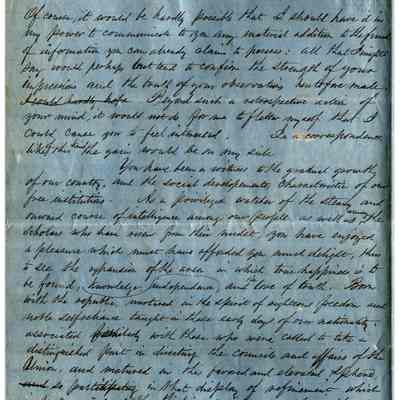 Of course, it would be hardly possible that I should have it in
my power to communicate to you any material addition to the fund
of information you can already claim to possess: all that I might
say would perhaps but tend to confirm the strength of your
impressions and the truth of your observations heretofore made.
I could hardly hope Beyond such a retrospective action of
your mind, it would not do for me to flatter myself that I
could cause you to feel interested. In a correspondence
like this the gain would be on my side.
You have been a witness to the gradual growth
of our country, and the social developments characteristic of our
free institutions. As a privileged watcher of the steady and
onward course of intelligence among our people as well as the
scholars who have risen from their midst, you have enjoyed
a pleasure which must have afforded you much delight, this
to see the expansion of the area in which true happiness is to
be found, knowledge, independence and love of truth. Born
with the republic, nurtured in the spirit of righteous freedom and
noble selfreliance taught in those early days of our nationality
associated with those who were called to take a
distinguished part in directing the councils and affairs of the
Union, and matured in this favored and elevated sphere
and so participating in that display of refinement which